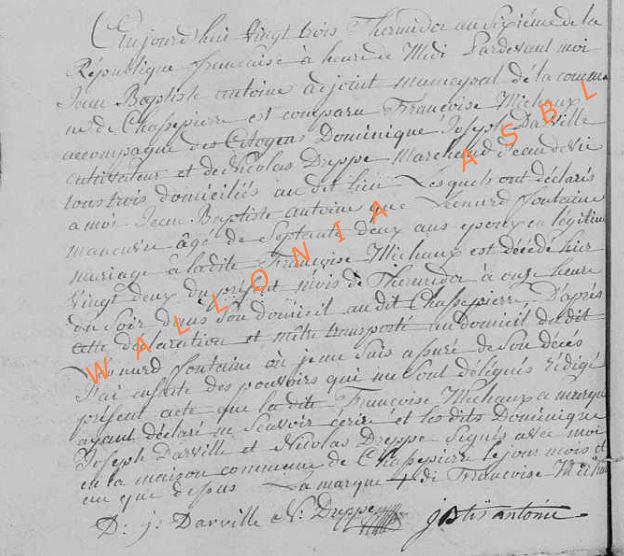 Cejourdhui Vingt trois Thermidor an Sixième de la
République française à heure de Midi Pardevant moi
Jean Baptiste antoine adjoint municipal de la commu
ne de Chassepierre est comparu Françoise Michaux
accompagné des Citoyens Dominique Joseph Darville
cultivateur et de Nicolas Dreppe Marchand d'eau de vie
tous trois domiciliés au dit lieu Lesquels ont déclarés
a moi Jean Baptiste antoine que Leonard fontaine
manoeuvre âgé de Septante deux ans epoux en légitime
mariage à ladite Françoise Michaux est décédé hier
Vingt deux du présent mois de Thermidor à onze heure
du Soir dans Son domicil au dit Chassepierre, D'après
cette déclaration et m'être transporté au domicil du dit
Leonard fontaine où je me Suis assuré de Son décès
J'ai ensuite des pouvoirs qui me Sont délégués rédigé
présent acte que la dite Françoise Michaux a marqué
ayant déclaré ne Scavoir écrire et les dits Dominique
Joseph Darville et Nicolas Dreppe Signés avec moi
en la maison commune de Chassepierre le jour mois et
an que dessus La marque di Françoise Michaux
D: j: Darville N: Dreppe jBtis antoine
WALLONIA ASBL